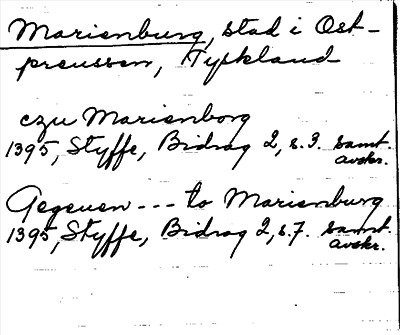 Marienburg, stad i Ost-
preussen, Tyskland
czu Marienborg
1395, Styffe, Bidrag 2, s. 3. samt.
avskr.
Gegeuen --- to Marienburg
1395, Styffe, Bidrag 2, s. 7. samt.
avskr.